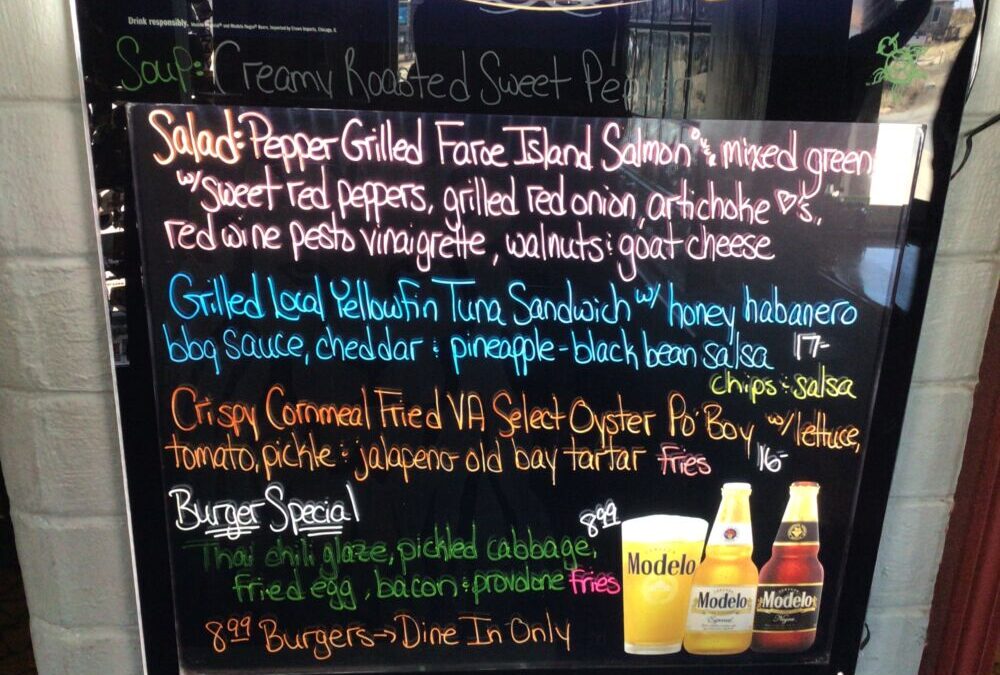 Drink responsibly.
Soup: Creamy Roasted Sweet
Salad: Pepper Grilled Faroe Island Salmon mixed green
w/ sweet red peppers, grilled red onion, artichoke ♡'s,
red wine pesto vinaigrette, walnuts & goat cheese
Grilled Local Yellowfin Tuna Sandwich w/ honey habanero
bbq sauce, cheddar & pineapple-black bean salsa 17-
chips & salsa
Crispy Cornmeal Fried VA Select Oyster Po'Boy w/ lettuce,
tomato, pickle & jalapeno old bay tartar fries 16-
Burger Special 8.99
Thai chili glaze, pickled cabbage,
fried egg, bacon & provolone fries
8.99 Burgers → Dine In Only
Modelo
Modelo
Especial
Modelo
Negra